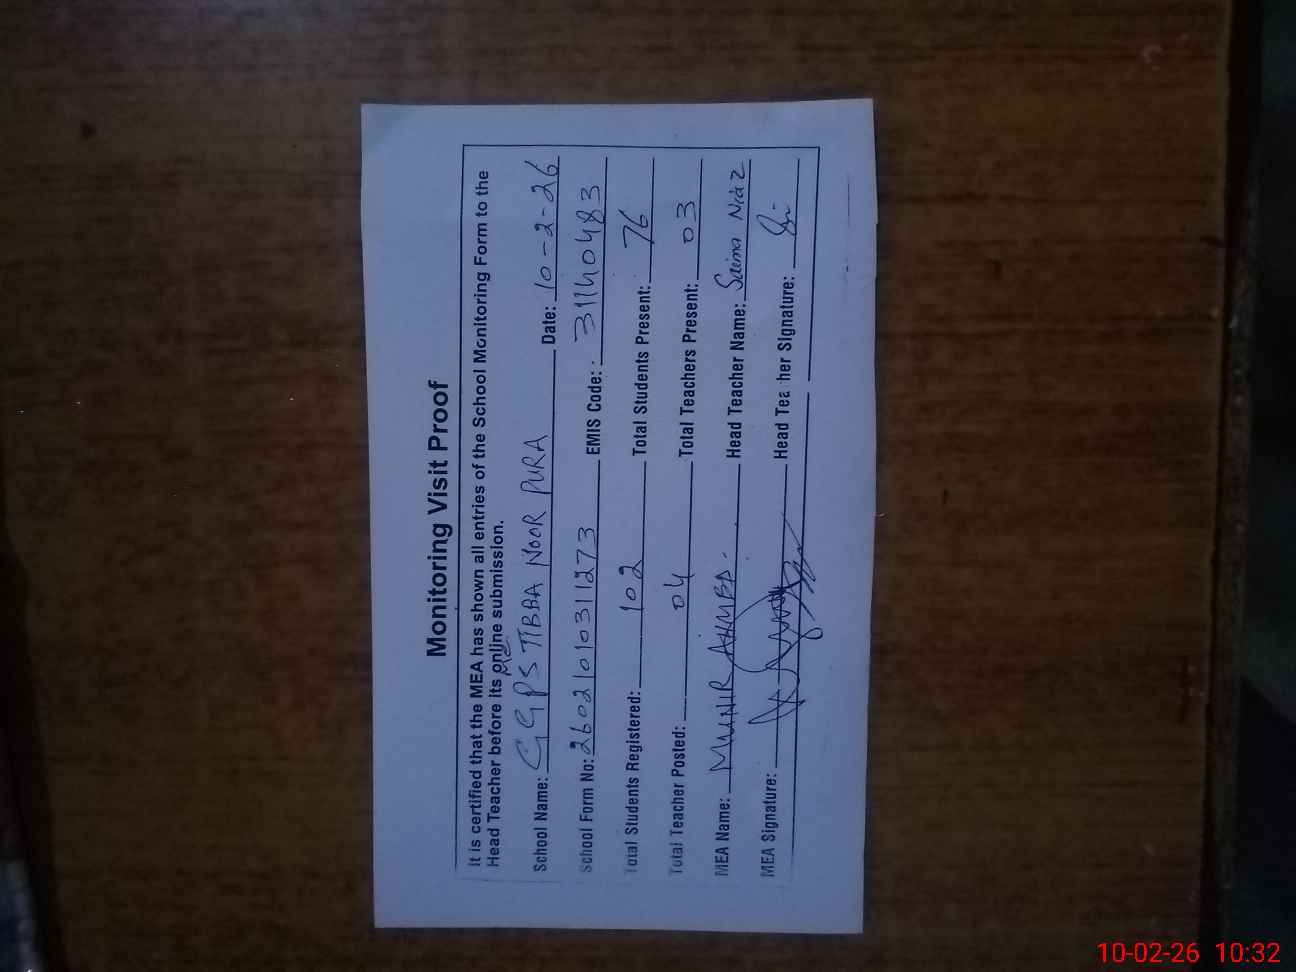 Monitoring Visit Proof
It is certified that the MEA has shown all entries of the School Monitoring Form to the
Head Teacher before its online submission.
School Name: GGPS TIBBA NOOR PURA Date: 10-2-26
School Form No: 26021010311273 EMIS Code: 31140483
Total Students Registered: 102 Total Students Present: 76
Total Teacher Posted: 04 Total Teachers Present: 03
MEA Name: MUNIR AHMED. Head Teacher Name: Saima Niaz
MEA Signature: Head Teacher Signature:
10-02-26 10:32